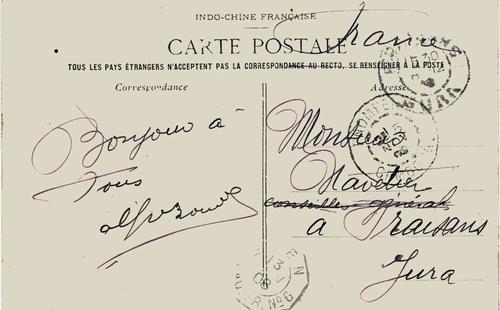 INDO-CHINE FRANÇAISE
France
CARTE POSTALE
TOUS LES PAYS ÉTRANGERS N'ACCEPTENT PAS LA CORRESPONDANCE AU RECTO, SE RENSEIGNER A LA POSTE
Correspondance
Adresse
Bonjour à
tous
Monsieur
conseiller général
a Fraisans
Jura